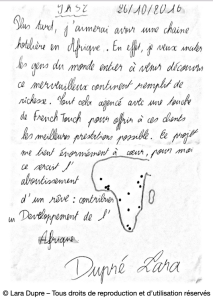 IASZ 26/10/2016
Plus tard, j'aimerai avoir une chaine
hotelière en Afrique. En effet, je veux inviter
les gens du monde entier à venir découvrir
ce merveilleux continent remplit de
richesse. Tout cela agencé avec une touche
de French Touch pour offrir à ces clients
les meilleures prestations possible. Ce projet
me tient énormément à coeur, pour moi
ce serait l'
aboutissement
d'un rêve : contribuer
au Developpement de l'
Afrique
Dupré Lara
© Lara Dupre – Tous droits de reproduction et d'utilisation réservés